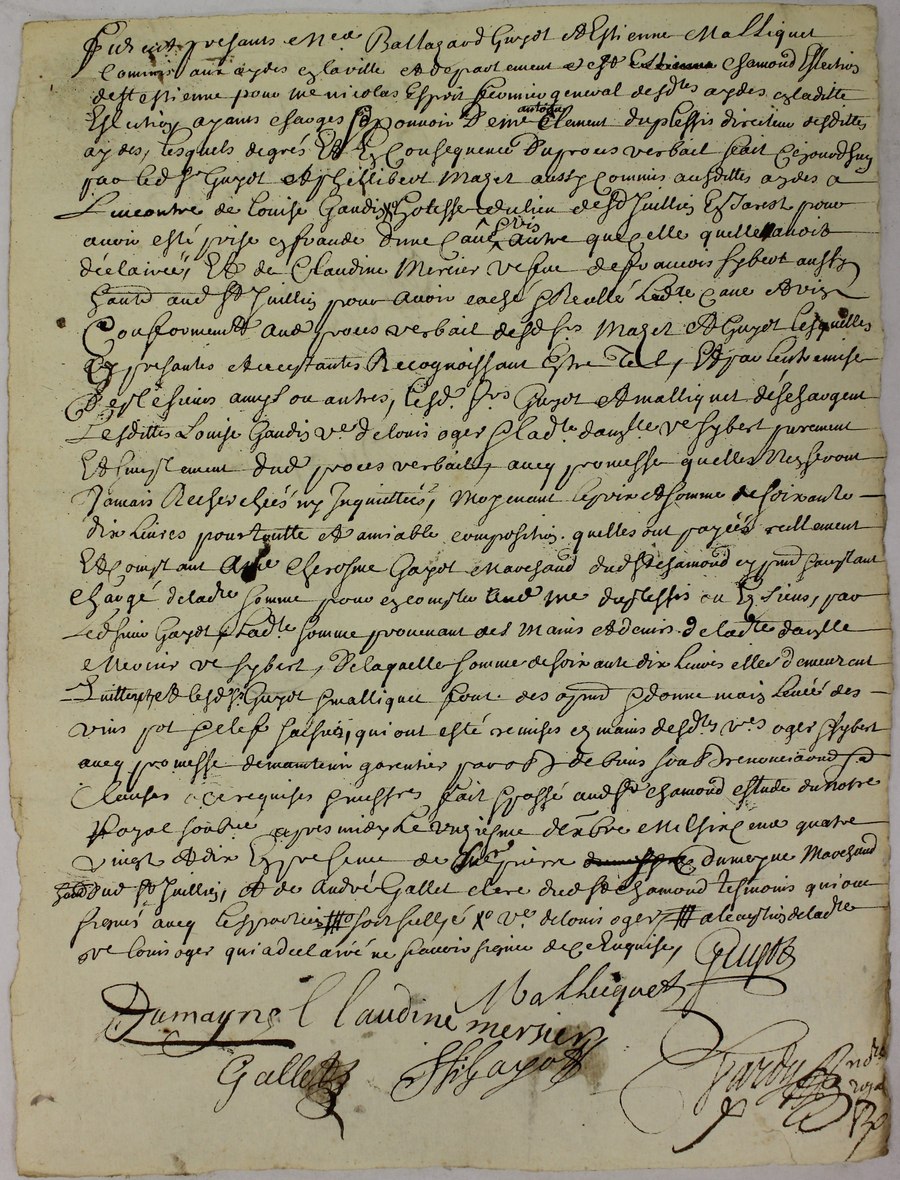 Furent presants Me Baltazard Guyot et Estienne Malliquet
commis aux aydes en la ville et departement de St Chamond Eslection
de St Estienne pour Me nicolas Esprit fermier general desdtes aydes en laditte
Eslection ayants charges et pouvoir de me antoine Clement duplessis directeur desdittes
aydes, lesquels de grés Et En Consequence du proces verbail fait Cejourdhuy
par led Sr Guyot et phillibert Mazet aussy commis ausdittes aydes a
Lencontre de Louise Gaudin hotesse du lieu de St Jullien En Jarest pour
avoir esté prise en fraude dune Cave et vin autre que celle quelle avoit
déclairée, Et de Claudine Mercier vefve de francois sybert aussy
aud St Jullien pour avoir caché et Recellé Ladte Cave et vin
Conformement aud proces verbail desd srs Mazet et Guyot Lesquelles
Ey presantes et acceptantes Recognoissant Estre Tel, Et par lentremise
de leurs amys ou autres, lesd. Srs Guyot et malliquet deschargent
Lesdittes Louise Gaudin ve de Louis oger et ladte ve sybert purement
Et simplement dud proces verbail, avecq promesse quelles ne seront
Jamais Recherchées ny Inquiettées, Moyenant le prix et somme de soixante
dix Livres pour toutte et amiable composition quelles ont payées réellement
Et comptant Gayot Marchand dud St chamond ey pnt et acceptant
chargé de ladte somme pour en compter aud me duplessis ou Es siens, par
Ledt sieur Gayot Ladte somme provenant des Mains et deniers de ladte
Mercier ve sybert, De laquelle somme de soixante dix Livres elles demeurent
quittes, et lesd Srs Guyot et malliquet font des apnt et donne main Levée des
vins pot et clef saisies, qui ont esté remises es mains desdtes ves oger et sybert
avecq promesse de maintenir garentier par obligation de biens renonciations
Clauses a ce requises fait et passé aud St chamond estude du notre
Royal soubné apres midy Le vingtiesme dexbre Mil six cent quatre
vingt et dix En presence de Sieur pierre dumayne Marchand
dud St Jullien, et de André Gallet clerc dud St chamond tesmoins qui ont
signés avecq les parties ve de louis oger a lexeption de ladte
ve louis oger qui a declairé ne scavoir signer de ce Enquise,
Guyot
Dumayne Claudine mersier Malliquet
Gallet Gayot
Tardy notre
royal